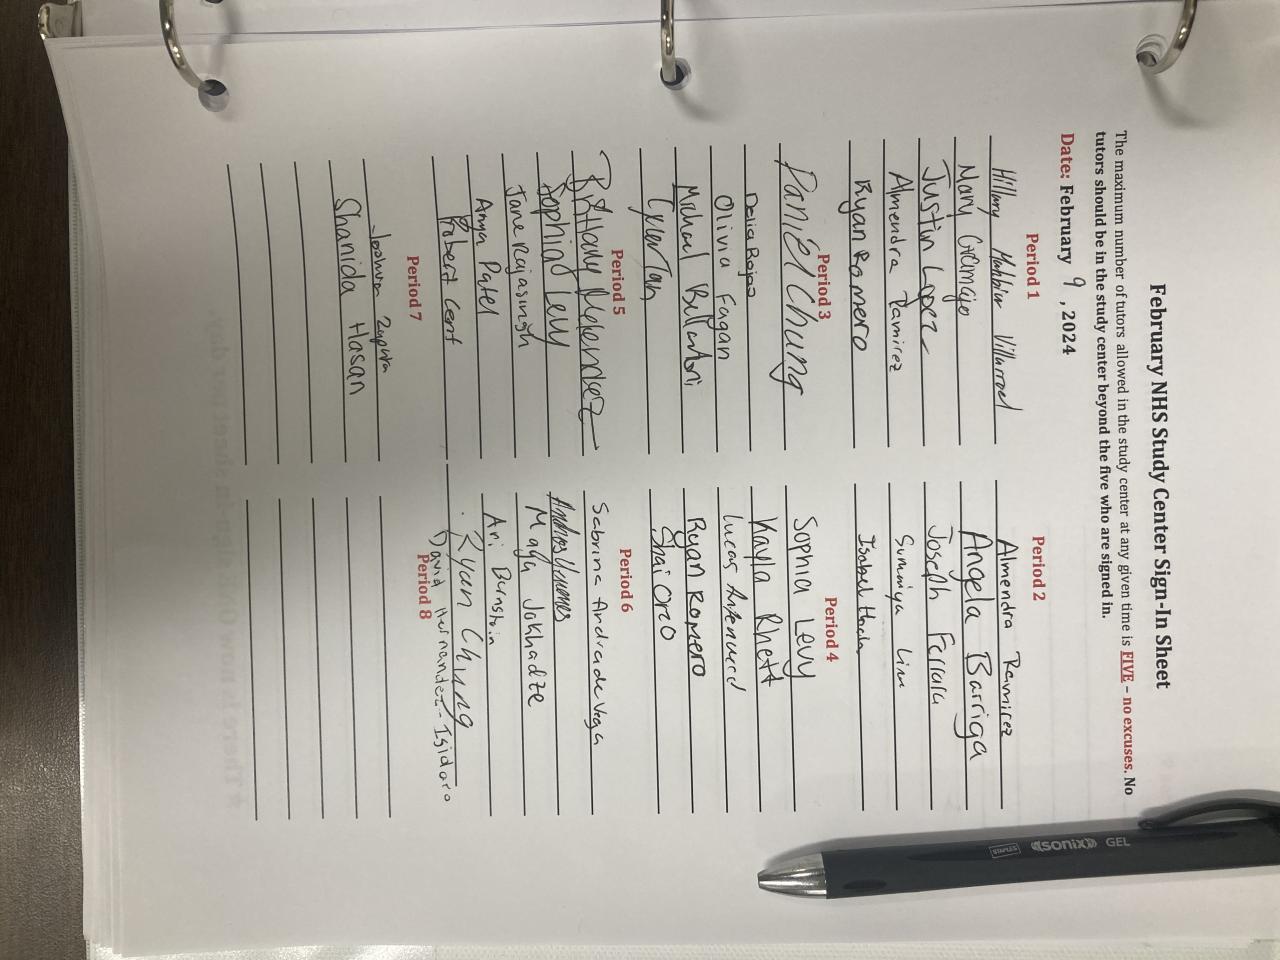 February NHS Study Center Sign-In Sheet
The maximum number of tutors allowed in the study center at any given time is FIVE – no excuses. No
tutors should be in the study center beyond the five who are signed in.
Date: February 9, 2024
Period 1
Hillary Villarroel
Mary
Justin Lopez
Almendra Ramirez
Ryan Romero
Period 2
Almendra Ramirez
Angela Barriga
Joseph
Sumaiya Lim
Isabel
Period 3
Daniel Chung
Delia Rojas
Olivia Fagan
Michael
Tyler Tan
Period 4
Sophia Levy
Kayla Rhett
Lucas
Ryan Romero
Shai Oreo
Period 5
Brittany Melendez
Sophia Levy
Jane Rajasingh
Anya Patel
Robert Cerf
Period 6
Sabrina Andrade Vega
Andres
Maya Jokhadze
Ari Burnstein
Ryan Chung
David Hernandez-Isidoro
Period 7
Joshua Zapata
Shanida Hasan
Period 8
STAPLES
sonix GEL